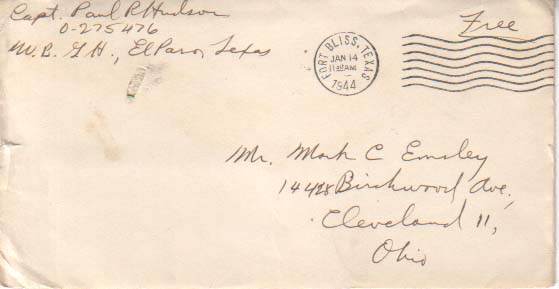 Capt. Paul R Hudson
O-275476
W.B. G.H., El Paso, Texas
Free
FORT BLISS, TEXAS
JAN 14
11 AM
1944
Mr. Mark C Emsley
14428 Birchwood Ave,
Cleveland 11,
Ohio